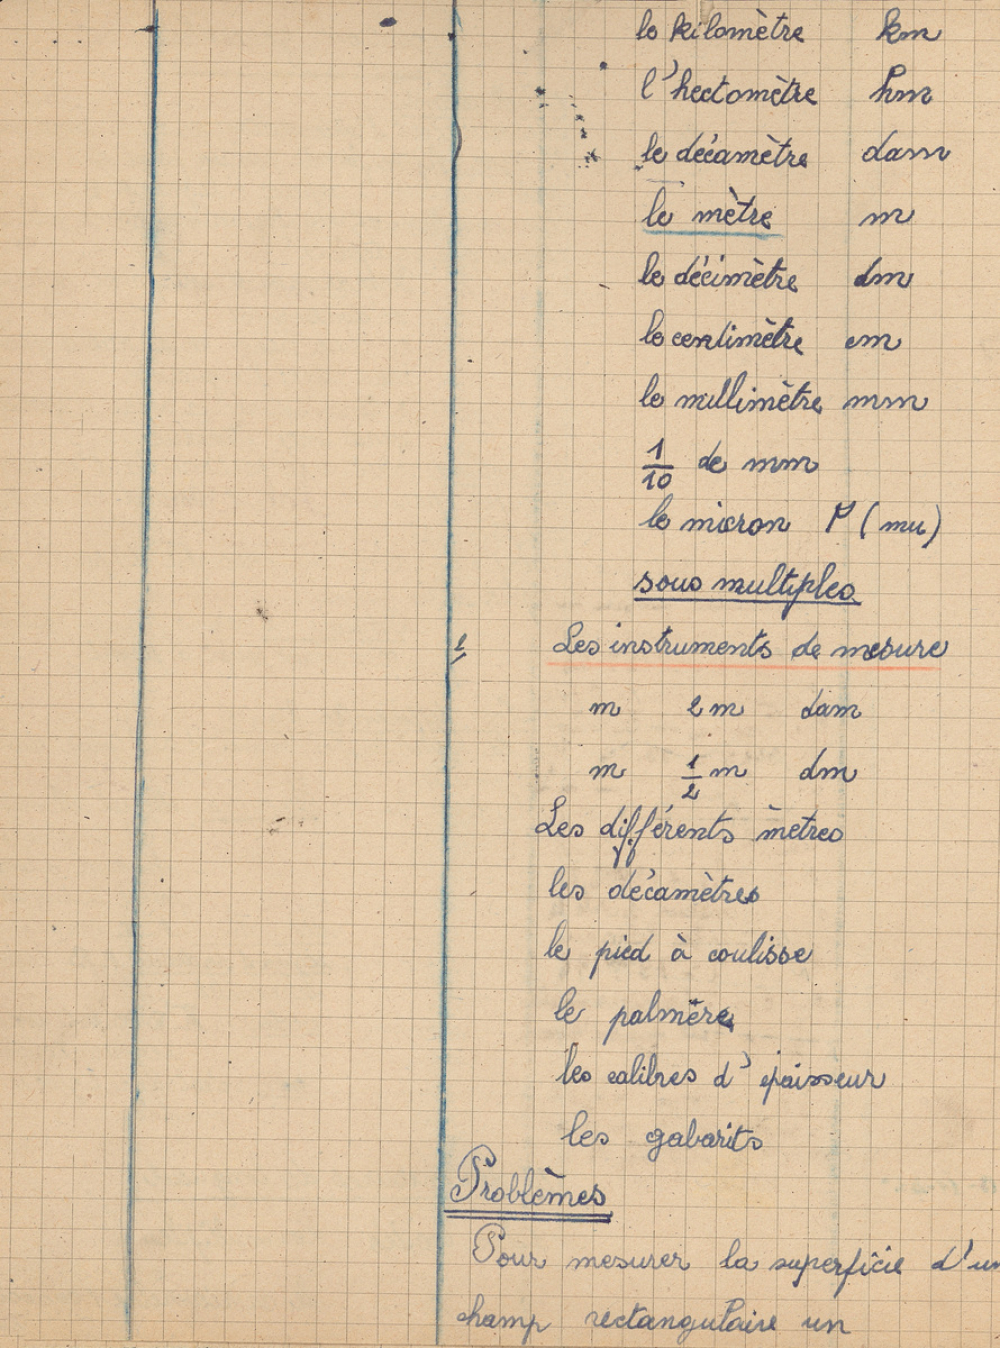 le kilomètre km
l'hectomètre hm
le décamètre dam
le mètre m
le décimètre dm
le centimètre cm
le millimètre mm
1/10 de mm
le micron μ (mu)
sous multiples
Les instruments de mesure
m 2m dam
m 1/2 m dm
Les différents mètres
les décamètres
le pied à coulisse
le palmère
les calibres d'épaisseur
les gabarits
Problèmes
Pour mesurer la superficie d'un
champ rectangulaire un